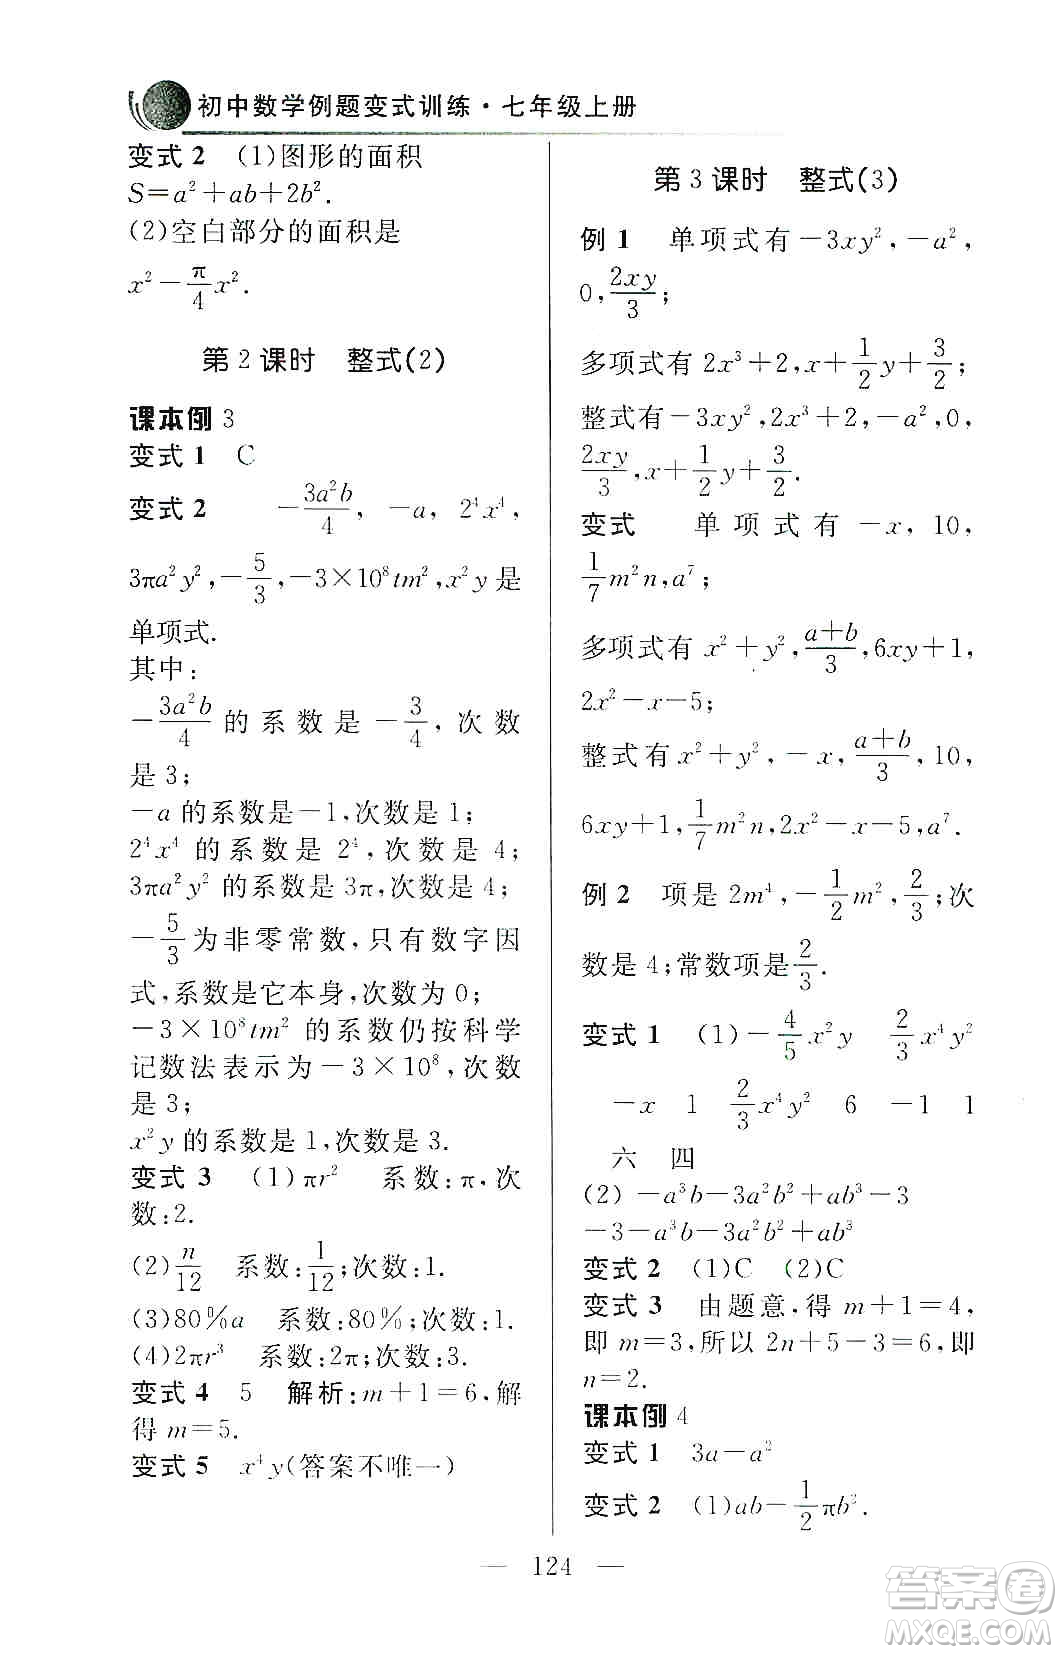 初中数学例题变式训练·七年级上册
变式2 (1)图形的面积
S=a²+ab+2b².
(2)空白部分的面积是
x²-π/4x².
第2课时 整式(2)
课本例3
变式1 C
变式2 -3a²b/4, -a, 2⁴x⁴,
3πa²y²,-5/3,-3×10⁸tm²,x²y是
单项式.
其中:
-3a²b/4的系数是-3/4,次数
是3;
-a的系数是-1,次数是1;
2⁴x⁴的系数是2⁴,次数是4;
3πa²y²的系数是3π,次数是4;
-5/3为非零常数,只有数字因
式,系数是它本身,次数为0;
-3×10⁸tm²的系数仍按科学
记数法表示为-3×10⁸,次数
是3;
x²y的系数是1,次数是3.
变式3 (1)πr² 系数:π,次
数:2.
(2)n/12 系数:1/12;次数:1.
(3)80%a 系数:80%;次数:1.
(4)2πr³ 系数:2π;次数:3.
变式4 5 解析:m+1=6,解
得m=5.
变式5 x⁴y(答案不唯一)
第3课时 整式(3)
例1 单项式有-3xy²,-a²,
0,2xy/3;
多项式有2x³+2,x+1/2y+3/2;
整式有-3xy²,2x³+2,-a²,0,
2xy/3,x+1/2y+3/2.
变式 单项式有-x,10,
1/7m²n,a⁷;
多项式有x²+y²,a+b/3,6xy+1,
2x²-x-5;
整式有x²+y²,-x,a+b/3,10,
6xy+1,1/7m²n,2x²-x-5,a⁷.
例2 项是2m⁴,-1/2m²,2/3;次
数是4;常数项是2/3.
变式1 (1)-4/5x²y 2/3x⁴y²
-x 1 2/3x⁴y² 6 -1 1
六 四
(2)-a³b-3a²b²+ab³-3
-3-a³b-3a²b²+ab³
变式2 (1)C (2)C
变式3 由题意,得m+1=4,
即m=3,所以2n+5-3=6,即
n=2.
课本例4
变式1 3a-a²
变式2 (1)ab-1/2πb².
— 124 —
答案卷
MXQE.COM